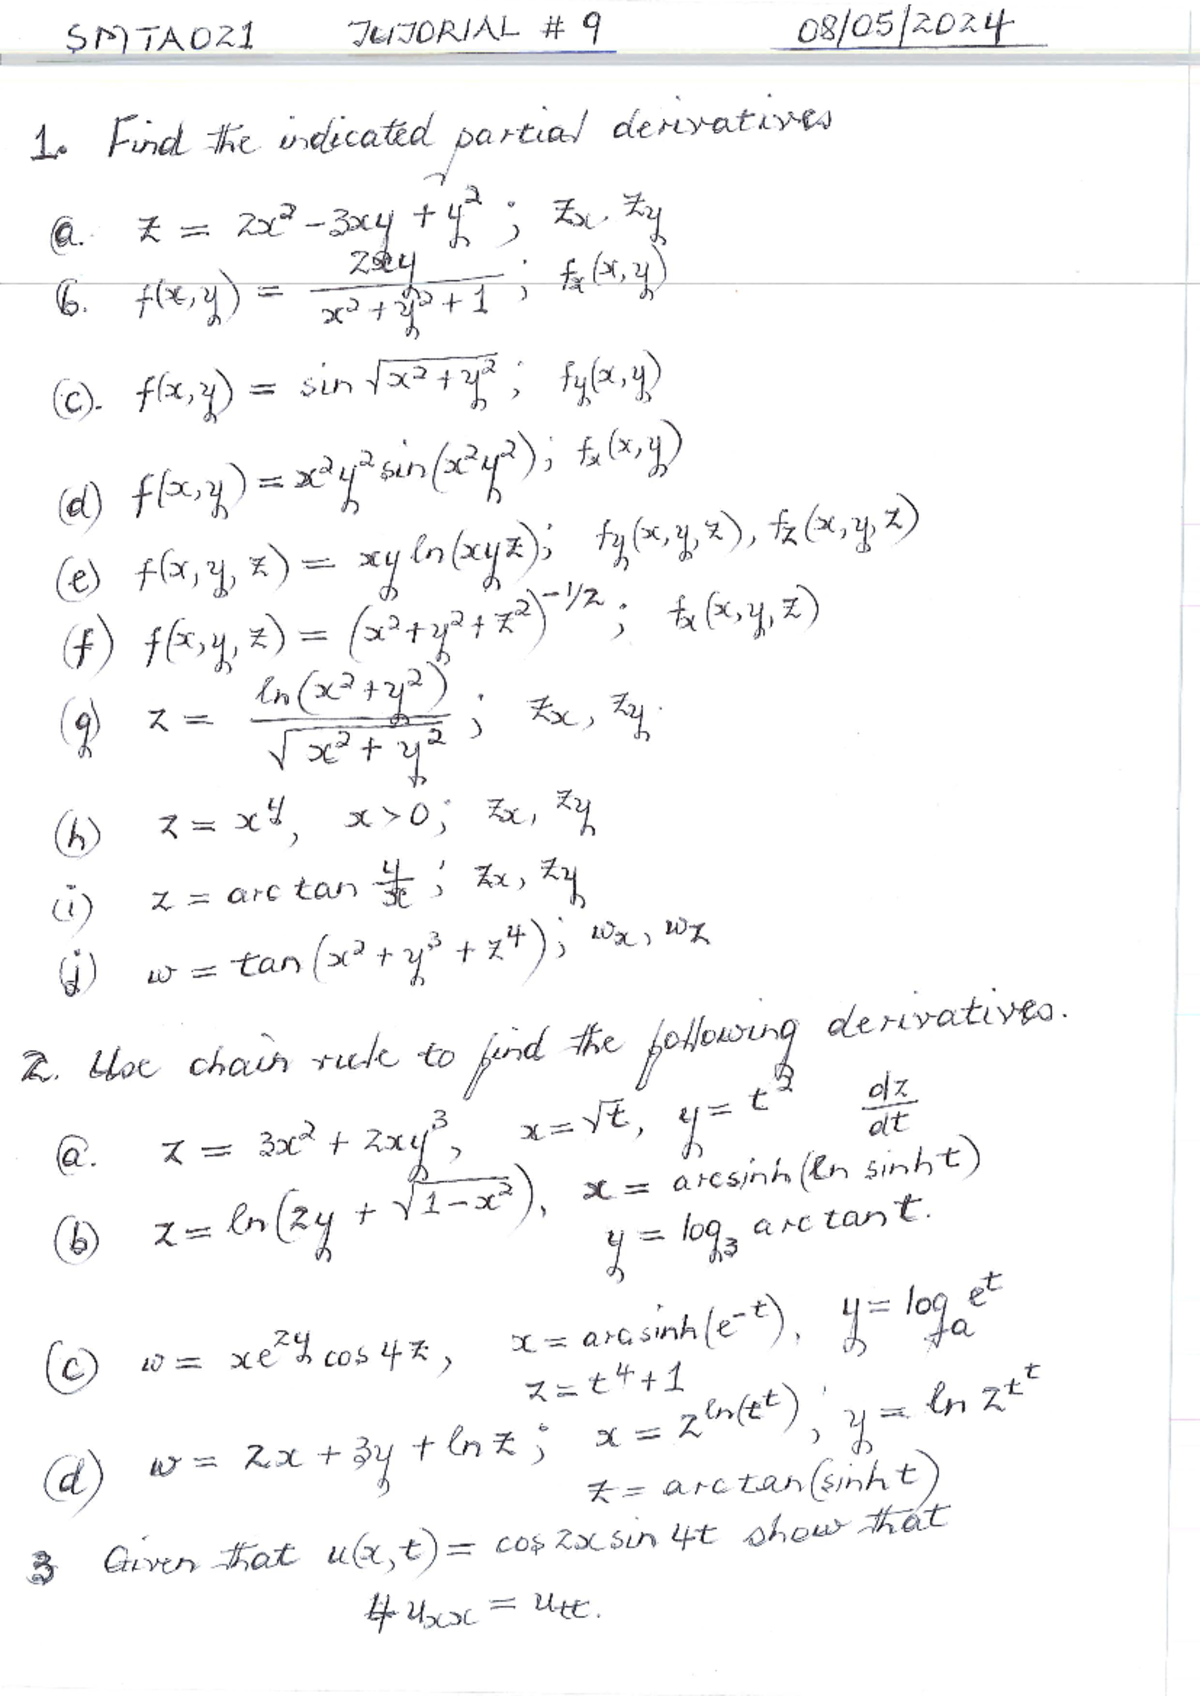 SMTA021 TUTORIAL # 9 08/05/2024
1. Find the indicated partial derivatives
a. z = 2x² - 3xy + y² ; zx, zy
b. f(x,y) = 2xy / (x² + y² + 1) ; fx(x,y)
(c). f(x,y) = sin √(x² + y²) ; fy(x,y)
(d) f(x,y) = x²y² sin(x²y²); fx(x,y)
(e) f(x,y,z) = xy ln(xyz); fy(x,y,z), fz(x,y,z)
(f) f(x,y,z) = (x² + y² + z²)^(-1/2) ; fx(x,y,z)
(g) z = ln(x² + y²) / √(x² + y²) ; zx, zy.
(h) z = x^y, x > 0; zx, zy
(i) z = arc tan y/x ; zx, zy
(j) w = tan(x² + y³ + z⁴); wx, wz
2. Use chain rule to find the following derivatives.
a. z = 3x² + 2xy³, x = √t, y = t² dz/dt
(b) z = ln(2y + √(1-x²)), x = arcsinh(ln sinh t)
y = log₃ arc tan t.
(c) w = xe^(2y) cos 4z, x = arcsinh(e^(-t)), y = log_a e^t
z = t⁴ + 1
(d) w = 2x + 3y + ln z ; x = 2^(ln(t^t)) ; y = ln 2^(t^t)
z = arc tan(sinh t)
3 Given that u(x,t) = cos 2x sin 4t show that
4 uxx = utt.